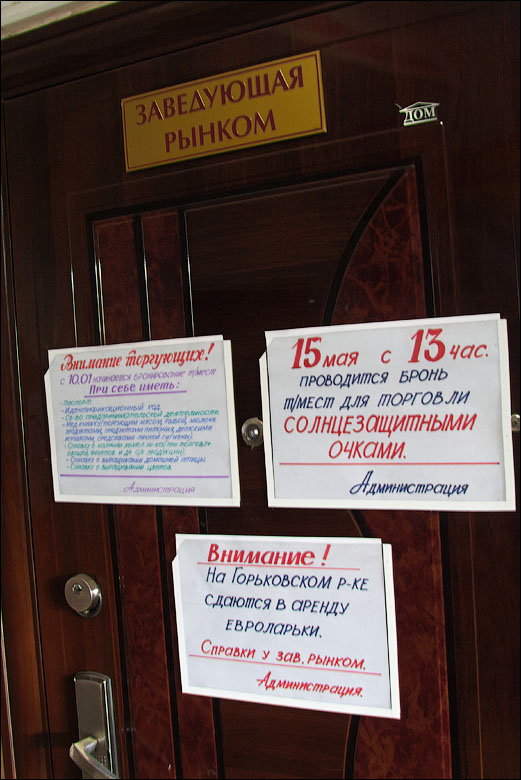 ЗАВЕДУЮЩАЯ
РЫНКОМ
ДОМ
Внимание торгующих!
с 10.01 начинается бронирование т/мест
При себе иметь:
- Паспорт
- Идентификационный код
- Св-во предпринимательской деятельности
- Мед.книжку (торгующим мясом, рыбой, молочн.
продуктами, продуктами питания, детскими
игрушками, средствами личной гигиены).
- Справку о наличии земел. уч-ка (при торговле
овощей, фруктов и др. с/х продукции).
- Справку о выращивании домашней птицы.
- Справку о выращивании цветов.
Администрация
15 мая с 13 час.
проводится бронь
т/мест для торговли
солнцезащитными
очками.
Администрация
Внимание!
На Горьковском р-ке
сдаются в аренду
евроларьки.
Справки у зав. рынком.
Администрация.